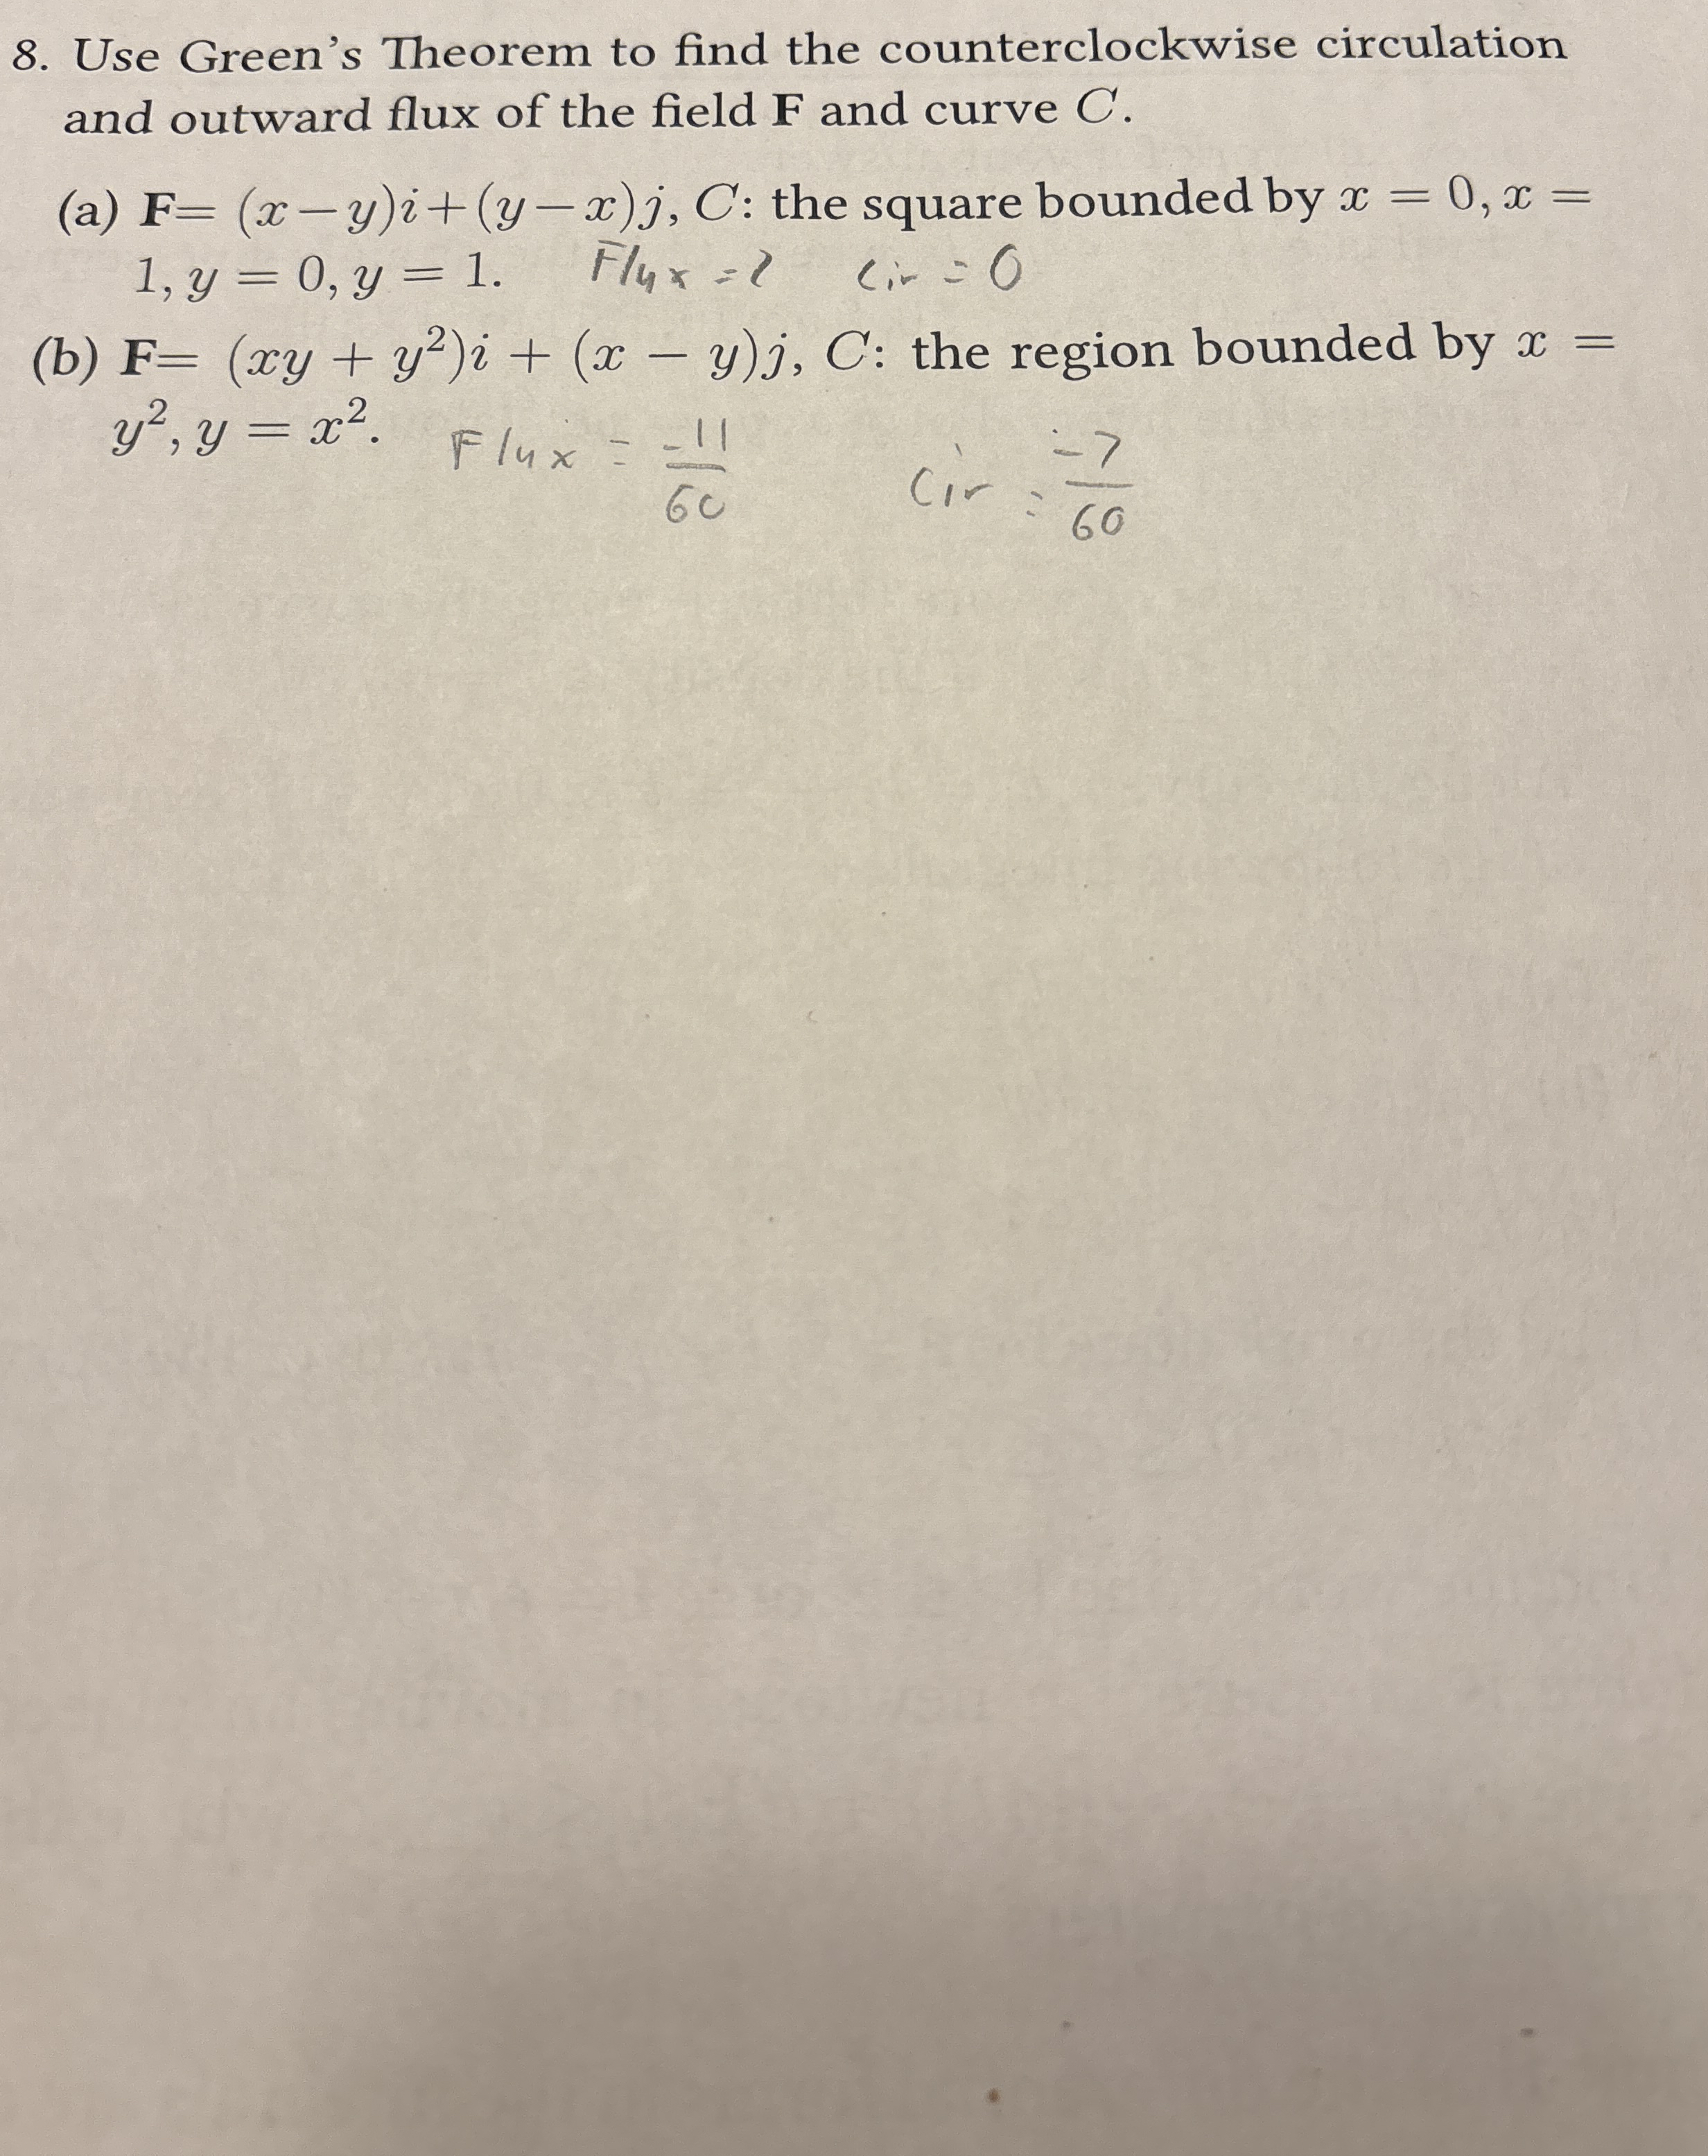 8. Use Green's Theorem to find the counterclockwise circulation
and outward flux of the field F and curve C.
(a) F= (x−y)i+(y−x)j, C: the square bounded by x = 0, x =
1, y = 0, y = 1. Flux = 2 Cir = 0
(b) F= (xy + y²)i + (x − y)j, C: the region bounded by x =
y², y = x². Flux = -11/60 Cir = -7/60